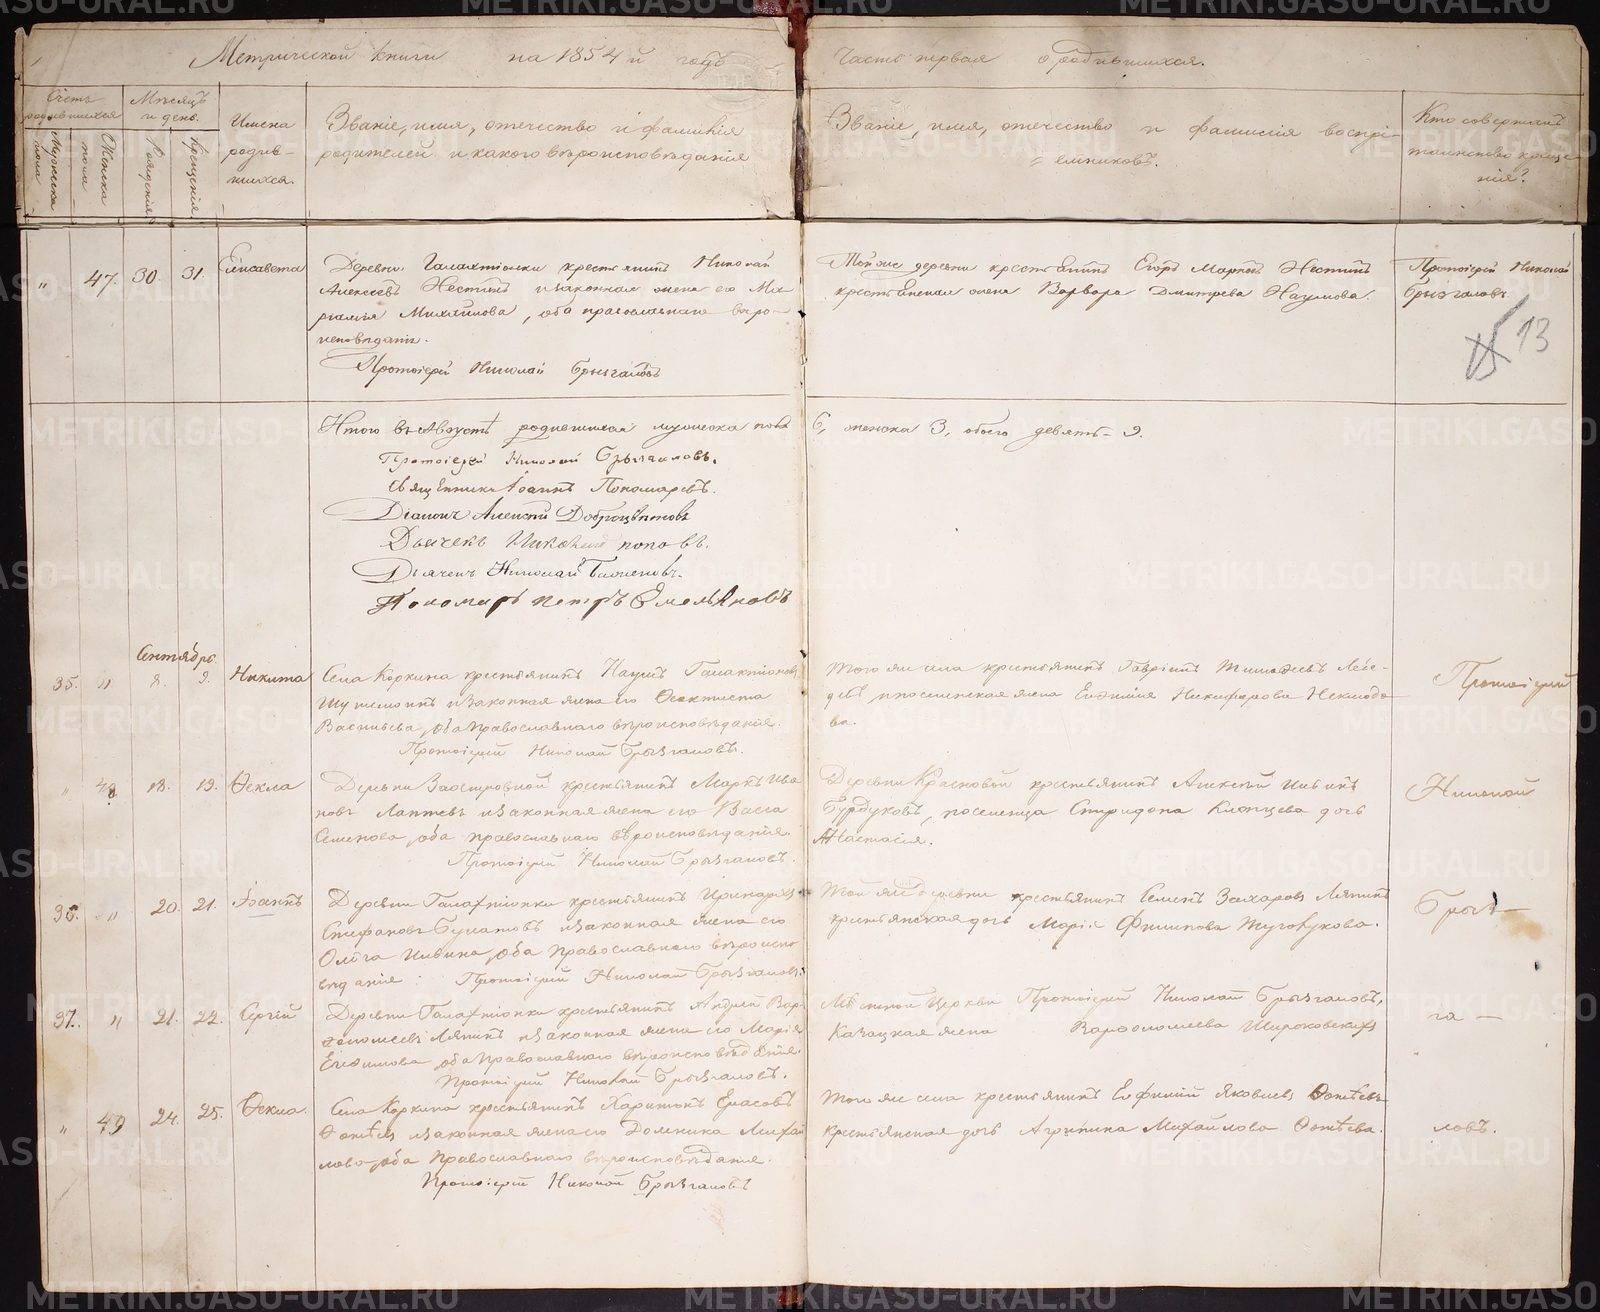 Метрической книги на 1854й годъ
Часть первая о родившихся.
Счетъ родившихся
Мужеска пола
Женска пола
Мѣсяцъ и день.
Рожденія
Крещенія
Имена родив-
шихся.
Званіе, имя, отечество и фамилія
родителей и какого вѣроисповѣданія
Званіе, имя, отечество и фамилія воспрі-
емниковъ.
Кто совершалъ
таинство креще-
нія?
" 47. 30. 31. Елисавета
Деревни Галактіонки крестьянинъ Николай
Алексѣевъ Нестинъ и законная жена его
Михайлова, оба православнаго вѣро-
исповѣданія.
Протоіерей Николай Брызгаловъ
Тойже деревни крестьянинъ Егоръ Марковъ Нестинъ
крестьянская жена Варвара Дмитрева Наумова.
Протоіерей Николай
Брызгаловъ
13
Итого въ Августѣ родившихся мужеска пола 6, женска 3, обоего девять - 9.
Протоіерей Николай Брызгаловъ.
Священникъ Іоаннъ Пономаревъ.
Діаконъ Алексѣй Доброцвѣтовъ
Дьячекъ Николай Поповъ.
Дьячекъ Николай
Пономарь Петръ Емельяновъ
Сентябрь
35. " 8. 9. Никита
Села Коркина крестьянинъ Наумъ Галактіоновъ
и законная жена его Феоктиста
Васильева, оба православнаго вѣроисповѣданія.
Протоіерей Николай Брызгаловъ.
Того же села крестьянинъ Гавріилъ
крестьянская жена Евфимія Никифорова
ва.
Протоіерей
" 48. 18. 19. Ѳекла
Деревни Заостровной крестьянинъ Маркъ Ива
новъ Лаптевъ и законная жена его Васса
Семенова, оба православнаго вѣроисповѣданія.
Протоіерей Николай Брызгаловъ.
Деревни Красновой крестьянинъ Алексѣй Ильинъ
Бурдуковъ, поселенца Спиридона Клепцева дочь
Анастасія.
Николай
36. " 20. 21. Іоаннъ
Деревни Галактіонки крестьянинъ Иринархъ
Стефановъ Булатовъ и законная жена его
Ольга Ильина, оба православнаго вѣроиспо
вѣданія. Протоіерей Николай Брызгаловъ.
Той же деревни крестьянинъ Семенъ Захаровъ Ляпинъ
крестьянская дочь Марія Филипова
Брыз—
37. " 21. 22. Сергій
Деревни Галактіонки крестьянинъ Андрей Вар-
ѳоломеевъ Ляпинъ и законная жена его Марія
Евфимова, оба православнаго вѣроисповѣданія.
Протоіерей Николай Брызгаловъ.
Мѣстной церкви Протоіерей Николай Брызгаловъ,
Казацкая жена Варфоломеева Широковскихъ
га —
" 49 24. 25. Ѳекла.
Села Коркина крестьянинъ Харитонъ Власовъ
Фотѣевъ и законная жена его Домника Михай
лова, оба православнаго вѣроисповѣданія.
Протоіерей Николай Брызгаловъ
Того же села крестьянинъ Евфимій Яковлевъ Фотѣевъ
крестьянская дочь Агрипина Михайлова Фотѣева.
ловъ.
METRIKI.GASO-URAL.RU